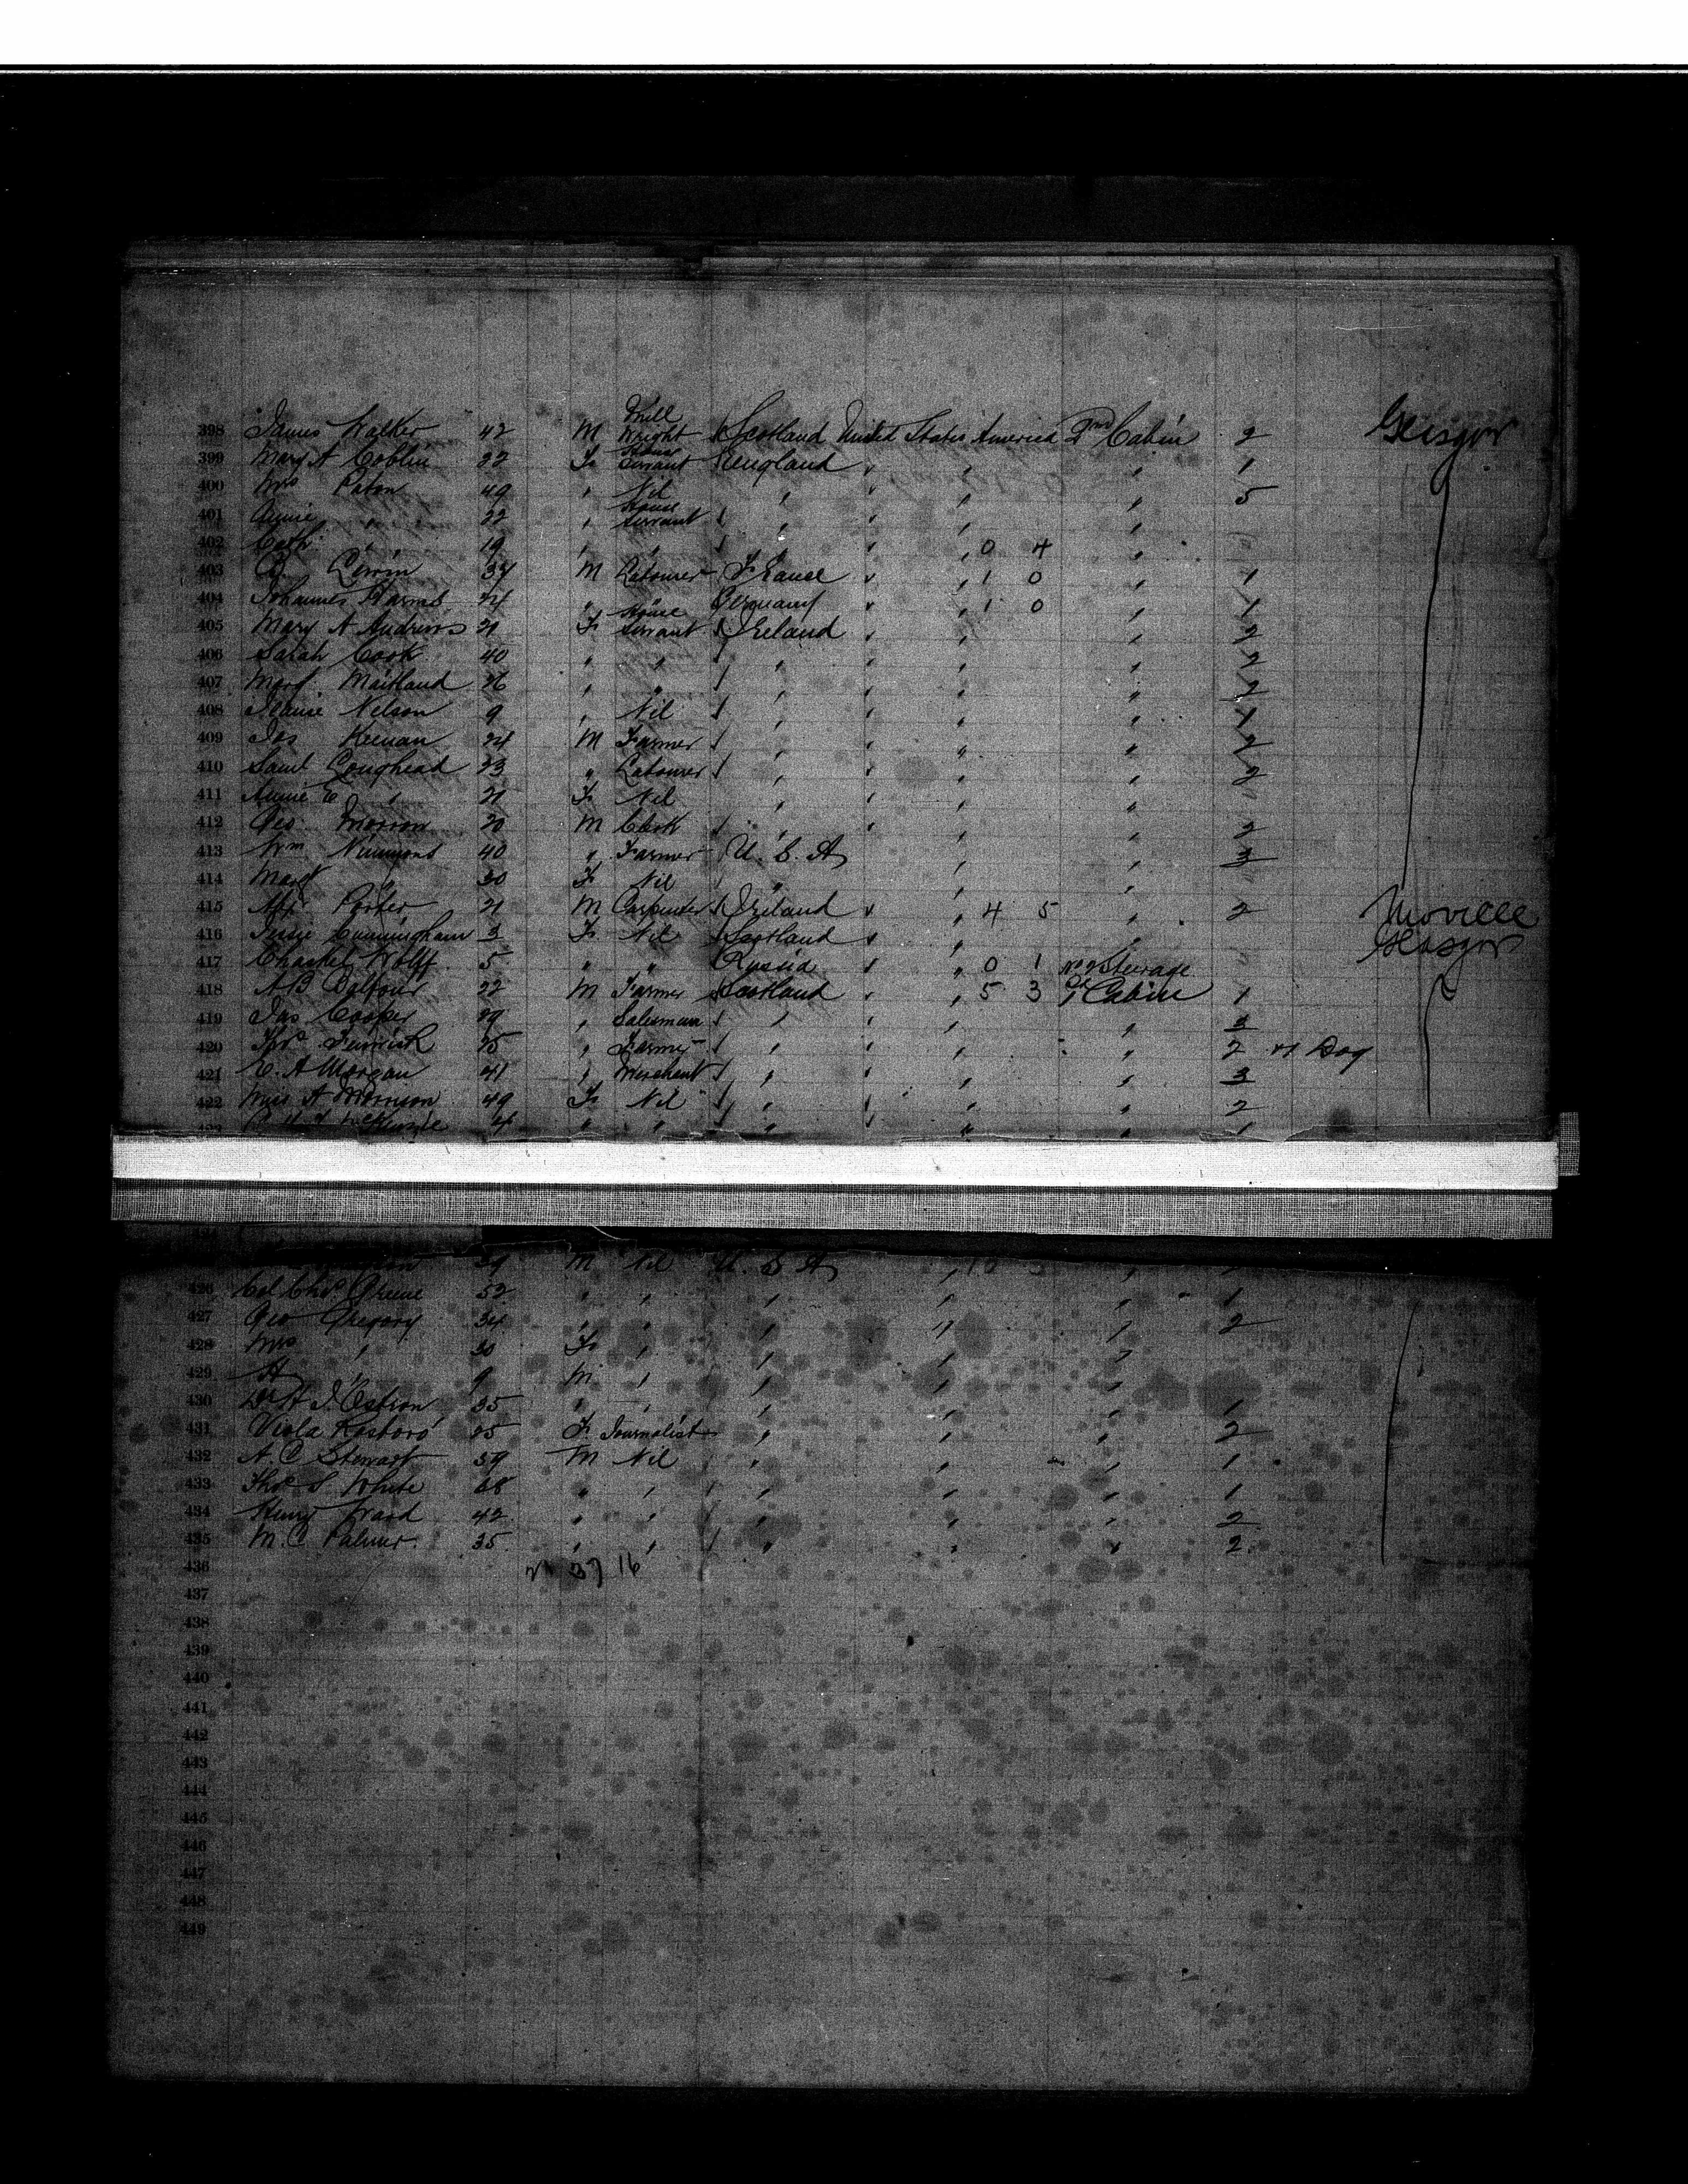 398 James Walker 42 M Mill Wright Scotland United States America 2nd Cabin 2 Glasgow
399 Mary A Coblin 22 F House Servant England " " " 1
400 Mrs Paton 49 " Nil " " " " 5
401 Annie " 22 " House Servant " " " "
402 Cath " 19 " " " " " 0 4 "
403 37 M Labourer France " " 1 0 " 1
404 Johannes Harms 24 " " Germany " " 1 0 " 1
405 Mary A Andrews 21 F House Servant Ireland " " " 2
406 Sarah Cook 40 " " " " " " 2
407 Marg. Maitland 26 " " " " " " 2
408 Nelson 9 " Nil " " " " 1
409 Jas Keenan 24 M Farmer " " " " 2
410 Saml Loughead 23 " Labourer " " " " 2
411 Annie E " 21 F Nil " " " "
412 Geo. Morron 20 M Clerk " " " " 2
413 Wm Nimmons 40 " Farmer U. S. A " " 3
414 Margt " 30 F Nil " " "
415 Porter 21 M Carpenter Ireland " " 4 5 " 2 Moville
416 Jessie Cunningham 3 F Nil Scotland " " Glasgow
417 Wolff 5 " " Russia " " 0 1 Steerage
418 A B Balfour 22 M Farmer Scotland " " 5 3 Cabin 1
419 Jas Cooper 29 " Salesman " " " " 3
420 Thos Fenwick 25 " Farmer " " " " 2 Dog
421 C. A Morgan 41 " Merchant " " " " 3
422 Miss A Morrison 49 F Nil " " " " 2
423 McKenzie " " " " " 1
39 M Nil U. S A " 10 "
426 Col Chas Greene 52 " " " " " 1
427 Geo Gregory 34 " " " " " 2
428 Mrs " 30 F " " " "
429 H " 9 M " " " "
430 Dr H J. Ostrom 35 " " " " " 1
431 Viola Roseboro 25 F Journalist " " " 2
432 A. C Stewart 59 M Nil " " " 1
433 Thos S White 68 " " " " " 1
434 Henry Ward 42 " " " " " 2
435 M. C Palmer 35 " " " " " 2
436 37 16
437
438
439
440
441
442
443
444
445
446
447
448
449